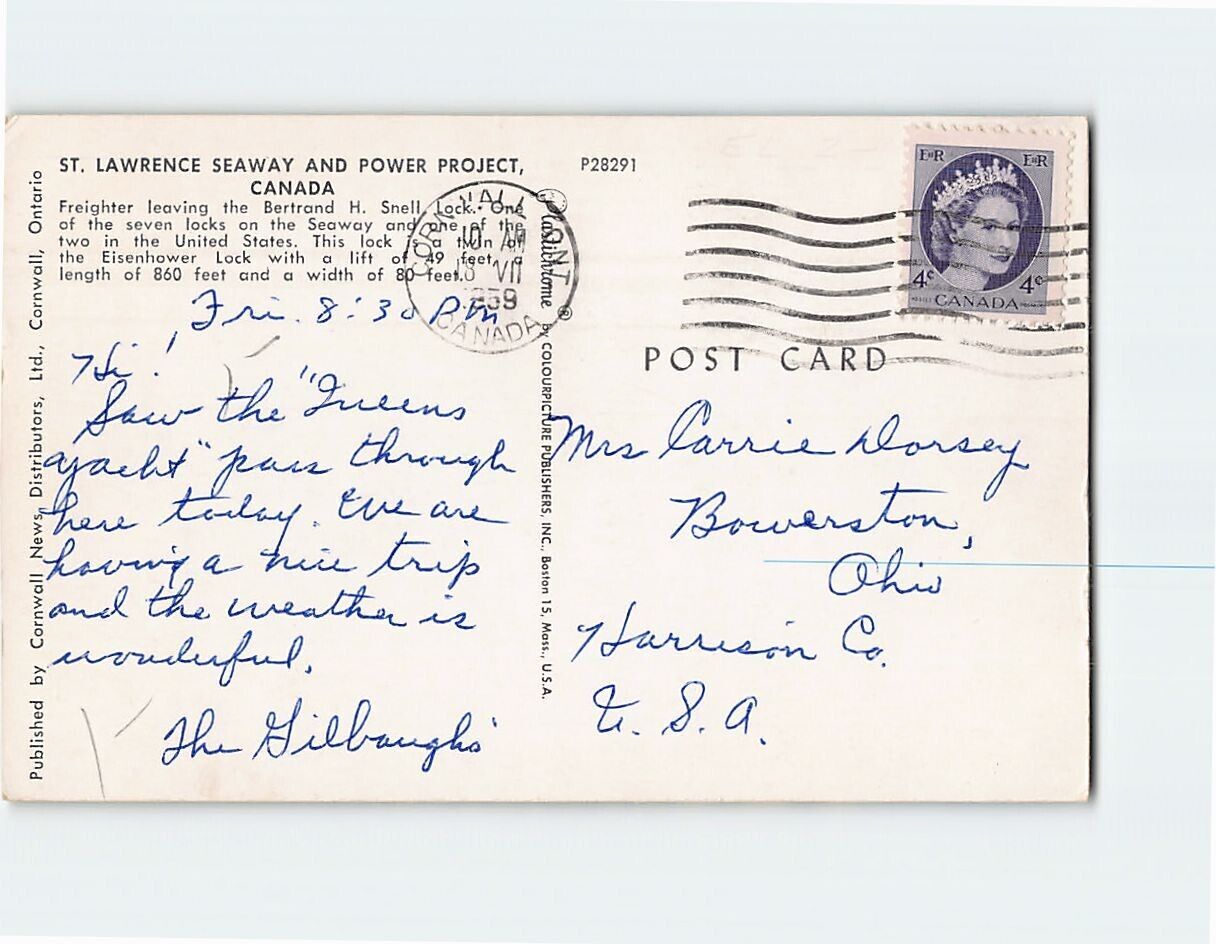 ST. LAWRENCE SEAWAY AND POWER PROJECT,
CANADA
Freighter leaving the Bertrand H. Snell Lock. One
of the seven locks on the Seaway and one of the
two in the United States. This lock is a twin of
the Eisenhower Lock with a lift of 49 feet, a
length of 860 feet and a width of 80 feet.
P28291
Fri. 8:30 P.M
Hi!
Saw the "Queens
yacht" pass through
here today. We are
having a nice trip
and the weather is
wonderful.
The Gilbaughs'
Published by Cornwall News Distributors, Ltd., Cornwall, Ontario
Plastichrome ®
by COLOURPICTURE PUBLISHERS, INC., Boston 15, Mass., U.S.A.
CORNWALL ONT
10 AM
VII
1959
CANADA
E II R E II R
4¢ 4¢
POSTES CANADA POSTAGE
POST CARD
Mrs Carrie Dorsey
Bowerston,
Ohio
Harrison Co.
U. S. A.